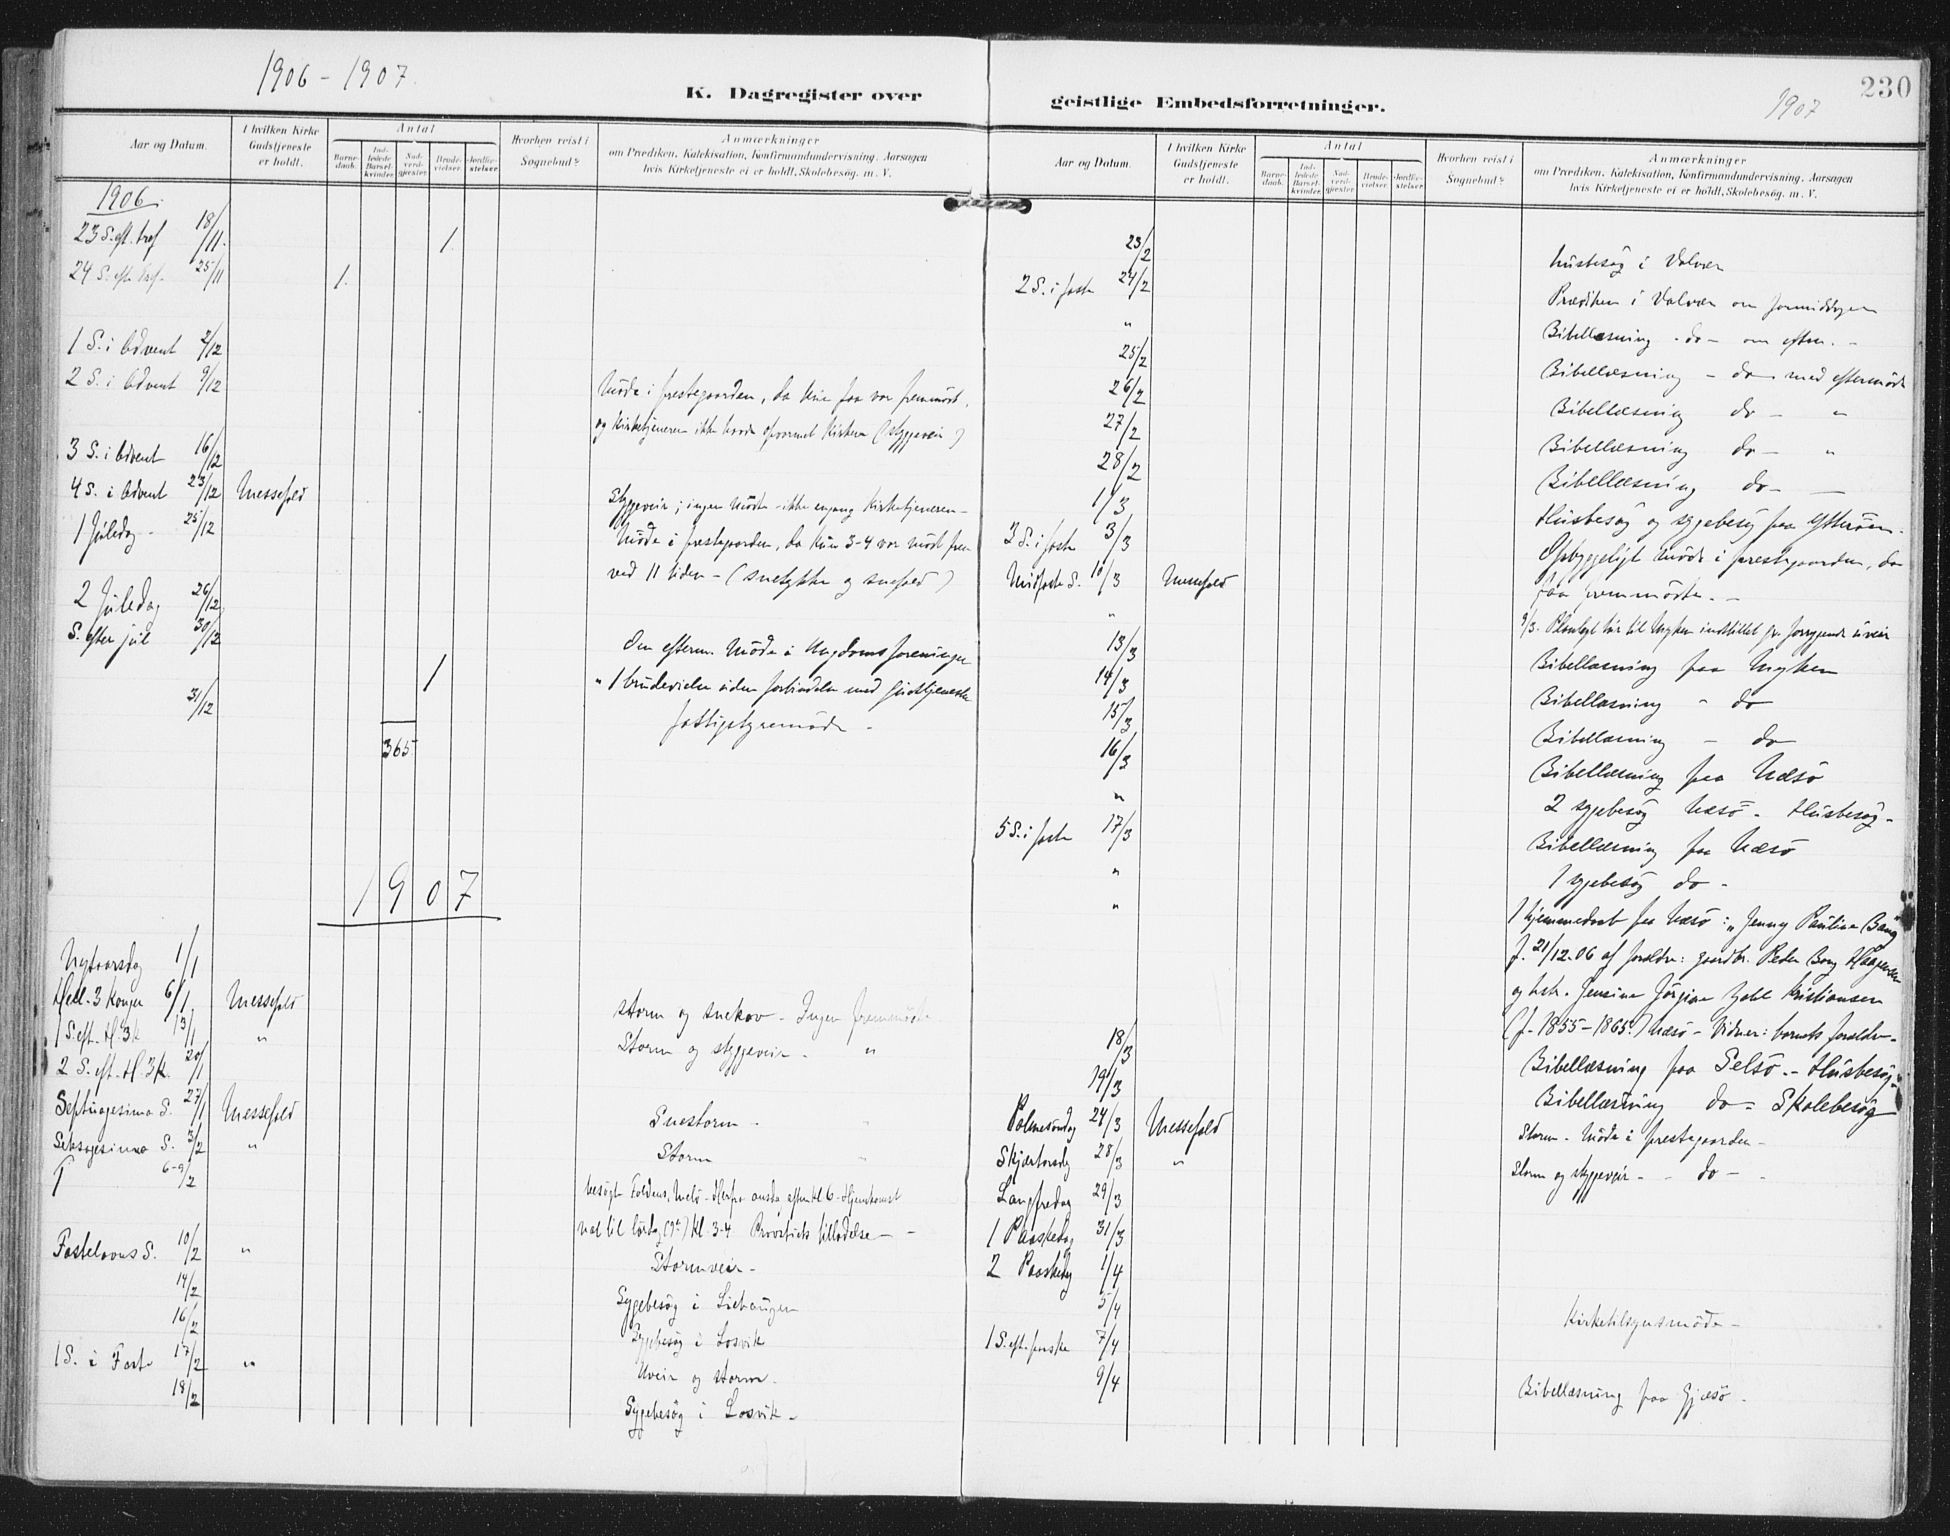 1906 - 1907.
K. Dagregister over
Aar og Datum.
I hvilken Kirke Gudstjeneste er holdt.
Antal
Barne-daab.
Ind-ledede Barsel-kvinder.
Nad-verd-gjester.
Brude-vielser.
Jordfæ-stelser.
Hvorhen reist i Sognebud?
Anmærkninger
om Prædiken, Katekisation, Konfirmandundervisning, Aarsagen
hvis Kirketjeneste ei er holdt, Skolebesøg. m. V.
1906.
23 S. eft. tref 18/11. 1
24 S. eft. tref. 25/11 1.
1 S. i Advent 2/12
2 S. i Advent 9/12
Møde i prestegaarden, da kun faa var fremmødt,
og kirketjeneren ikke havde opvarmet kirken (styggeveir)
3 S. i Advent 16/12
4 S. i Advent 23/12 Messefald
Styggeveir; ingen mødte - ikke engang kirketjeneren -
1 Juledag - 25/12
Møde i prestegaarden, da kun 3-4 var mødt frem
ved 11 tiden - (snetykke og snefald)
2 Juledag 26/12
S. efter jul 30/12 1
Om efterm. møde i Ungdomsforeningen
" 1 brudevielse uden forbindelse med gudstjeneste
31/12
fattigstyremøde -
365
1907
Nytaarsdag 1/1
Hell. 3 Konger 6/1 Messefald
storm og snekov - Ingen fremmødte
1 S. eft. H. 3 K 13/1 "
Storm og styggeveir - "
2 S. eft. H. 3 K. 20/1
Septuagesima S. 27/1 Messefald
Snestorm -
Seksagesima S. 3/2 "
Storm
6-9/2
besøgt Foldens,
Provstiets tilladelse - -
Fastelavns S. 10/2 "
Stormveir -
14/2
Sygebesøg i
16/2
Sygebesøg i Losvik
1 S. i Faste 17/2 "
Uveir og storm.
18/2
Sygebesøg i Losvik -
230
1907
geistlige Embedsforretninger.
Aar og Datum.
I hvilken Kirke Gudstjeneste er holdt.
Antal
Barne-daab.
Ind-ledede Barsel-kvinder.
Nad-verd-gjester.
Brude-vielser.
Jordfæ-stelser.
Hvorhen reist i Sognebud?
Anmærkninger
om Prædiken, Katekisation, Konfirmandundervisning, Aarsagen
hvis Kirketjeneste ei er holdt, Skolebesøg. m. V.
23/2 Husbesøg i Valvær
2 S. i faste 24/2 Prædiken i Valvær om formiddagen
" Bibellæsning - do - om efterm. -
25/2 Bibellæsning - do - med eftermøde
26/2 Bibellæsning do - "
27/2 Bibellæsning do - "
28/2 Bibellæsning do -
1/3 Husbesøg og sygebesøg paa Ytterøen.
3 S. i faste 3/3 Opbyggeligt møde i prestegaarden, da
faa fremmødte. -
Midfaste S. 10/3 Messefald
9/3. Planlagt tur til Myken indstillet gr. forrygende uveir
" Bibellæsning paa Myken
13/3 Bibellæsning - do
14/3 Bibellæsning - do
15/3 Bibellæsning paa Næsø
16/3 2 sygebesøg Næsø - Husbesøg -
" Bibellæsning paa Næsø
5 S. i faste 17/3 1 sygebesøg do -
" 1 hjemmedaab paa Næsø: "Jenny Pauline Bang"
" f. 21/12-06 af foreldre: gaardbr. Peder Bang Haagensen
og hstr. Jensine Jørgine Kristiansen
(f. 1855 - 1865.) Næsø - Vidner: barnets foreldre -
18/3 Bibellæsning paa Selsø. - Husbesøg -
19/3 Bibellæsning do - Skolebesøg
Palmesøndag 24/3 Messefald Storm - Møde i prestegaarden -
Skjærtorsdag 28/3 " Storm og styggeveir - - do -
Langfredag 29/3
1 Paaskedag 31/3
2 Paaskedag 1/4
5/4 Kirketilsynsmøde -
1 S. eft. paaske 7/4
9/4 Bibellæsning paa Gjæsø -